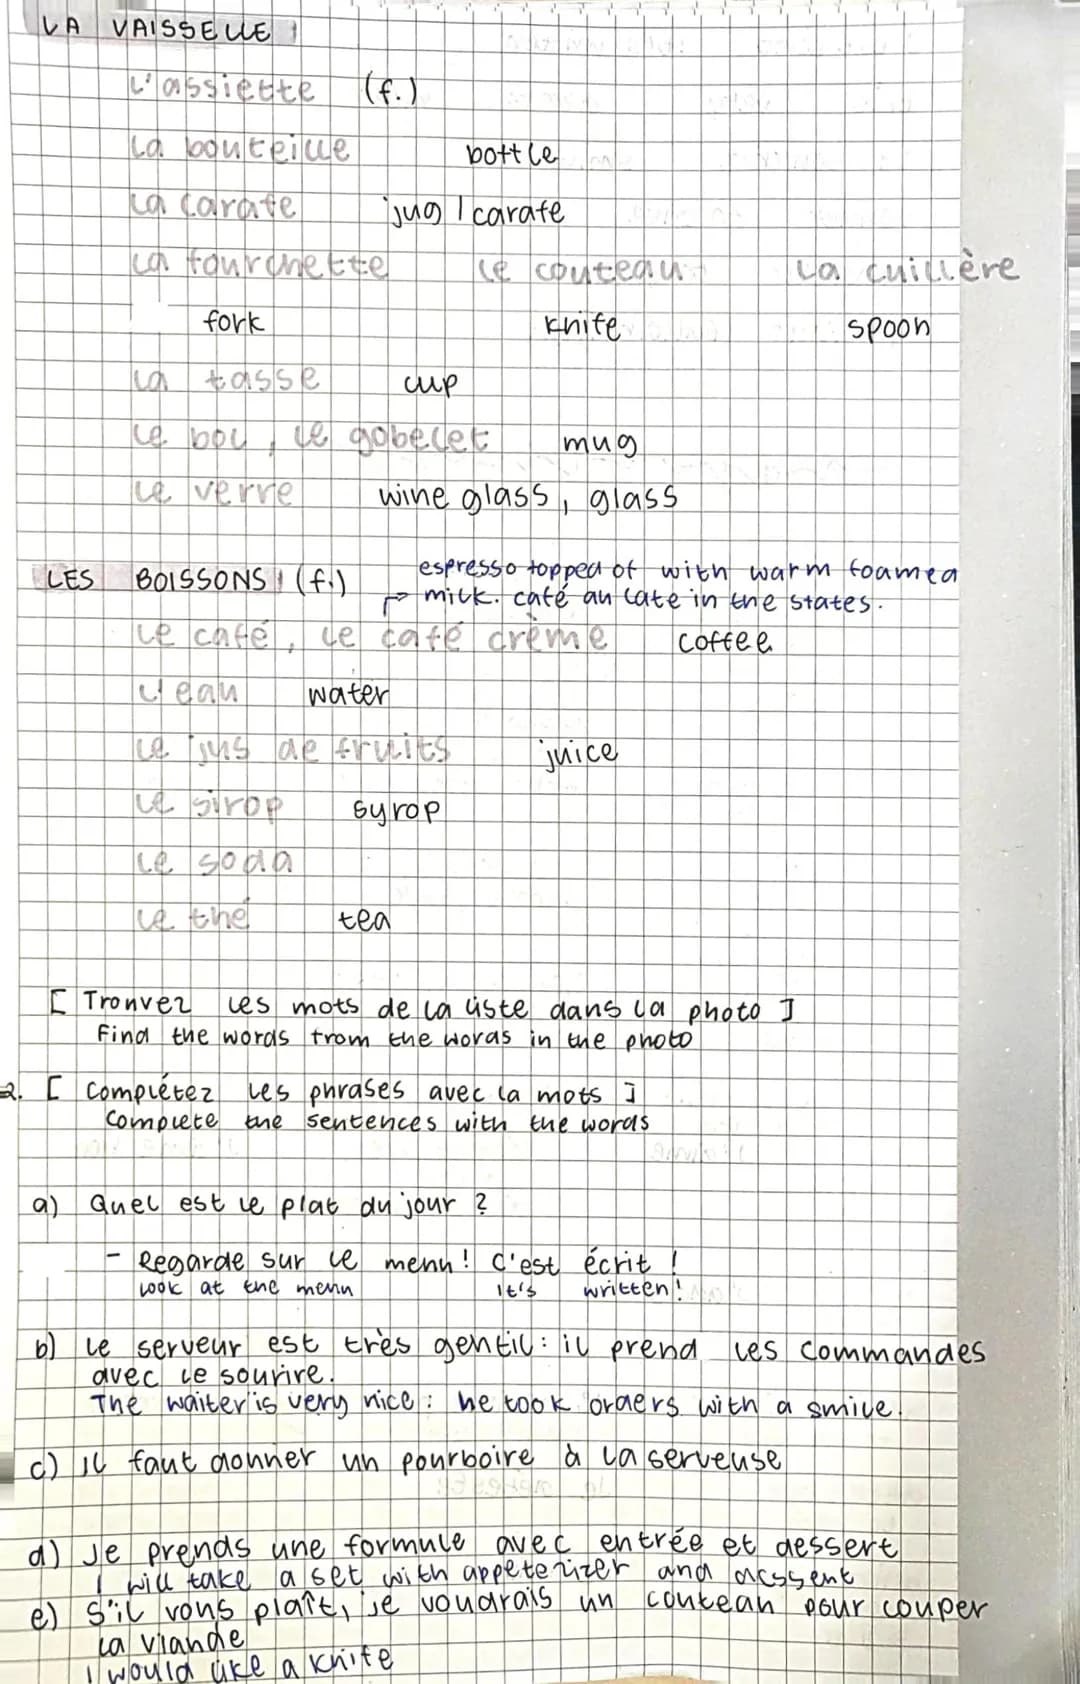 LA VAISSELLE
L'assiette (f.)
La bouteille bottle
La carafe jug / carafe
La fourchette Le couteau La cuillère
fork knife spoon
La tasse cup
Le bol, le gobelet mug
Le verre wine glass, glass
LES BOISSONS (f.) espresso topped of with warm foamed
→ milk. café au late in the states.
Le café, le café crème coffee
L'eau water
Le jus de fruits juice
Le sirop syrop
Le soda
Le thé tea
[ Trouvez les mots de la liste dans la photo ]
Find the words from the words in the photo
2. [ Complétez les phrases avec la mots ]
Complete the sentences with the words
a) Quel est le plat du jour ?
- Regarde sur le menu! C'est écrit !
Look at the menu It's written!
b) Le serveur est très gentil: il prend les commandes
avec le sourire.
The waiter is very nice: he took orders with a smile.
c) Il faut donner un pourboire à la serveuse
d) Je prends une formule avec entrée et dessert
I will take a set with appeterizer and
e) S'il vous plaît, je voudrais un couteau pour couper
la viande
I would like a knife